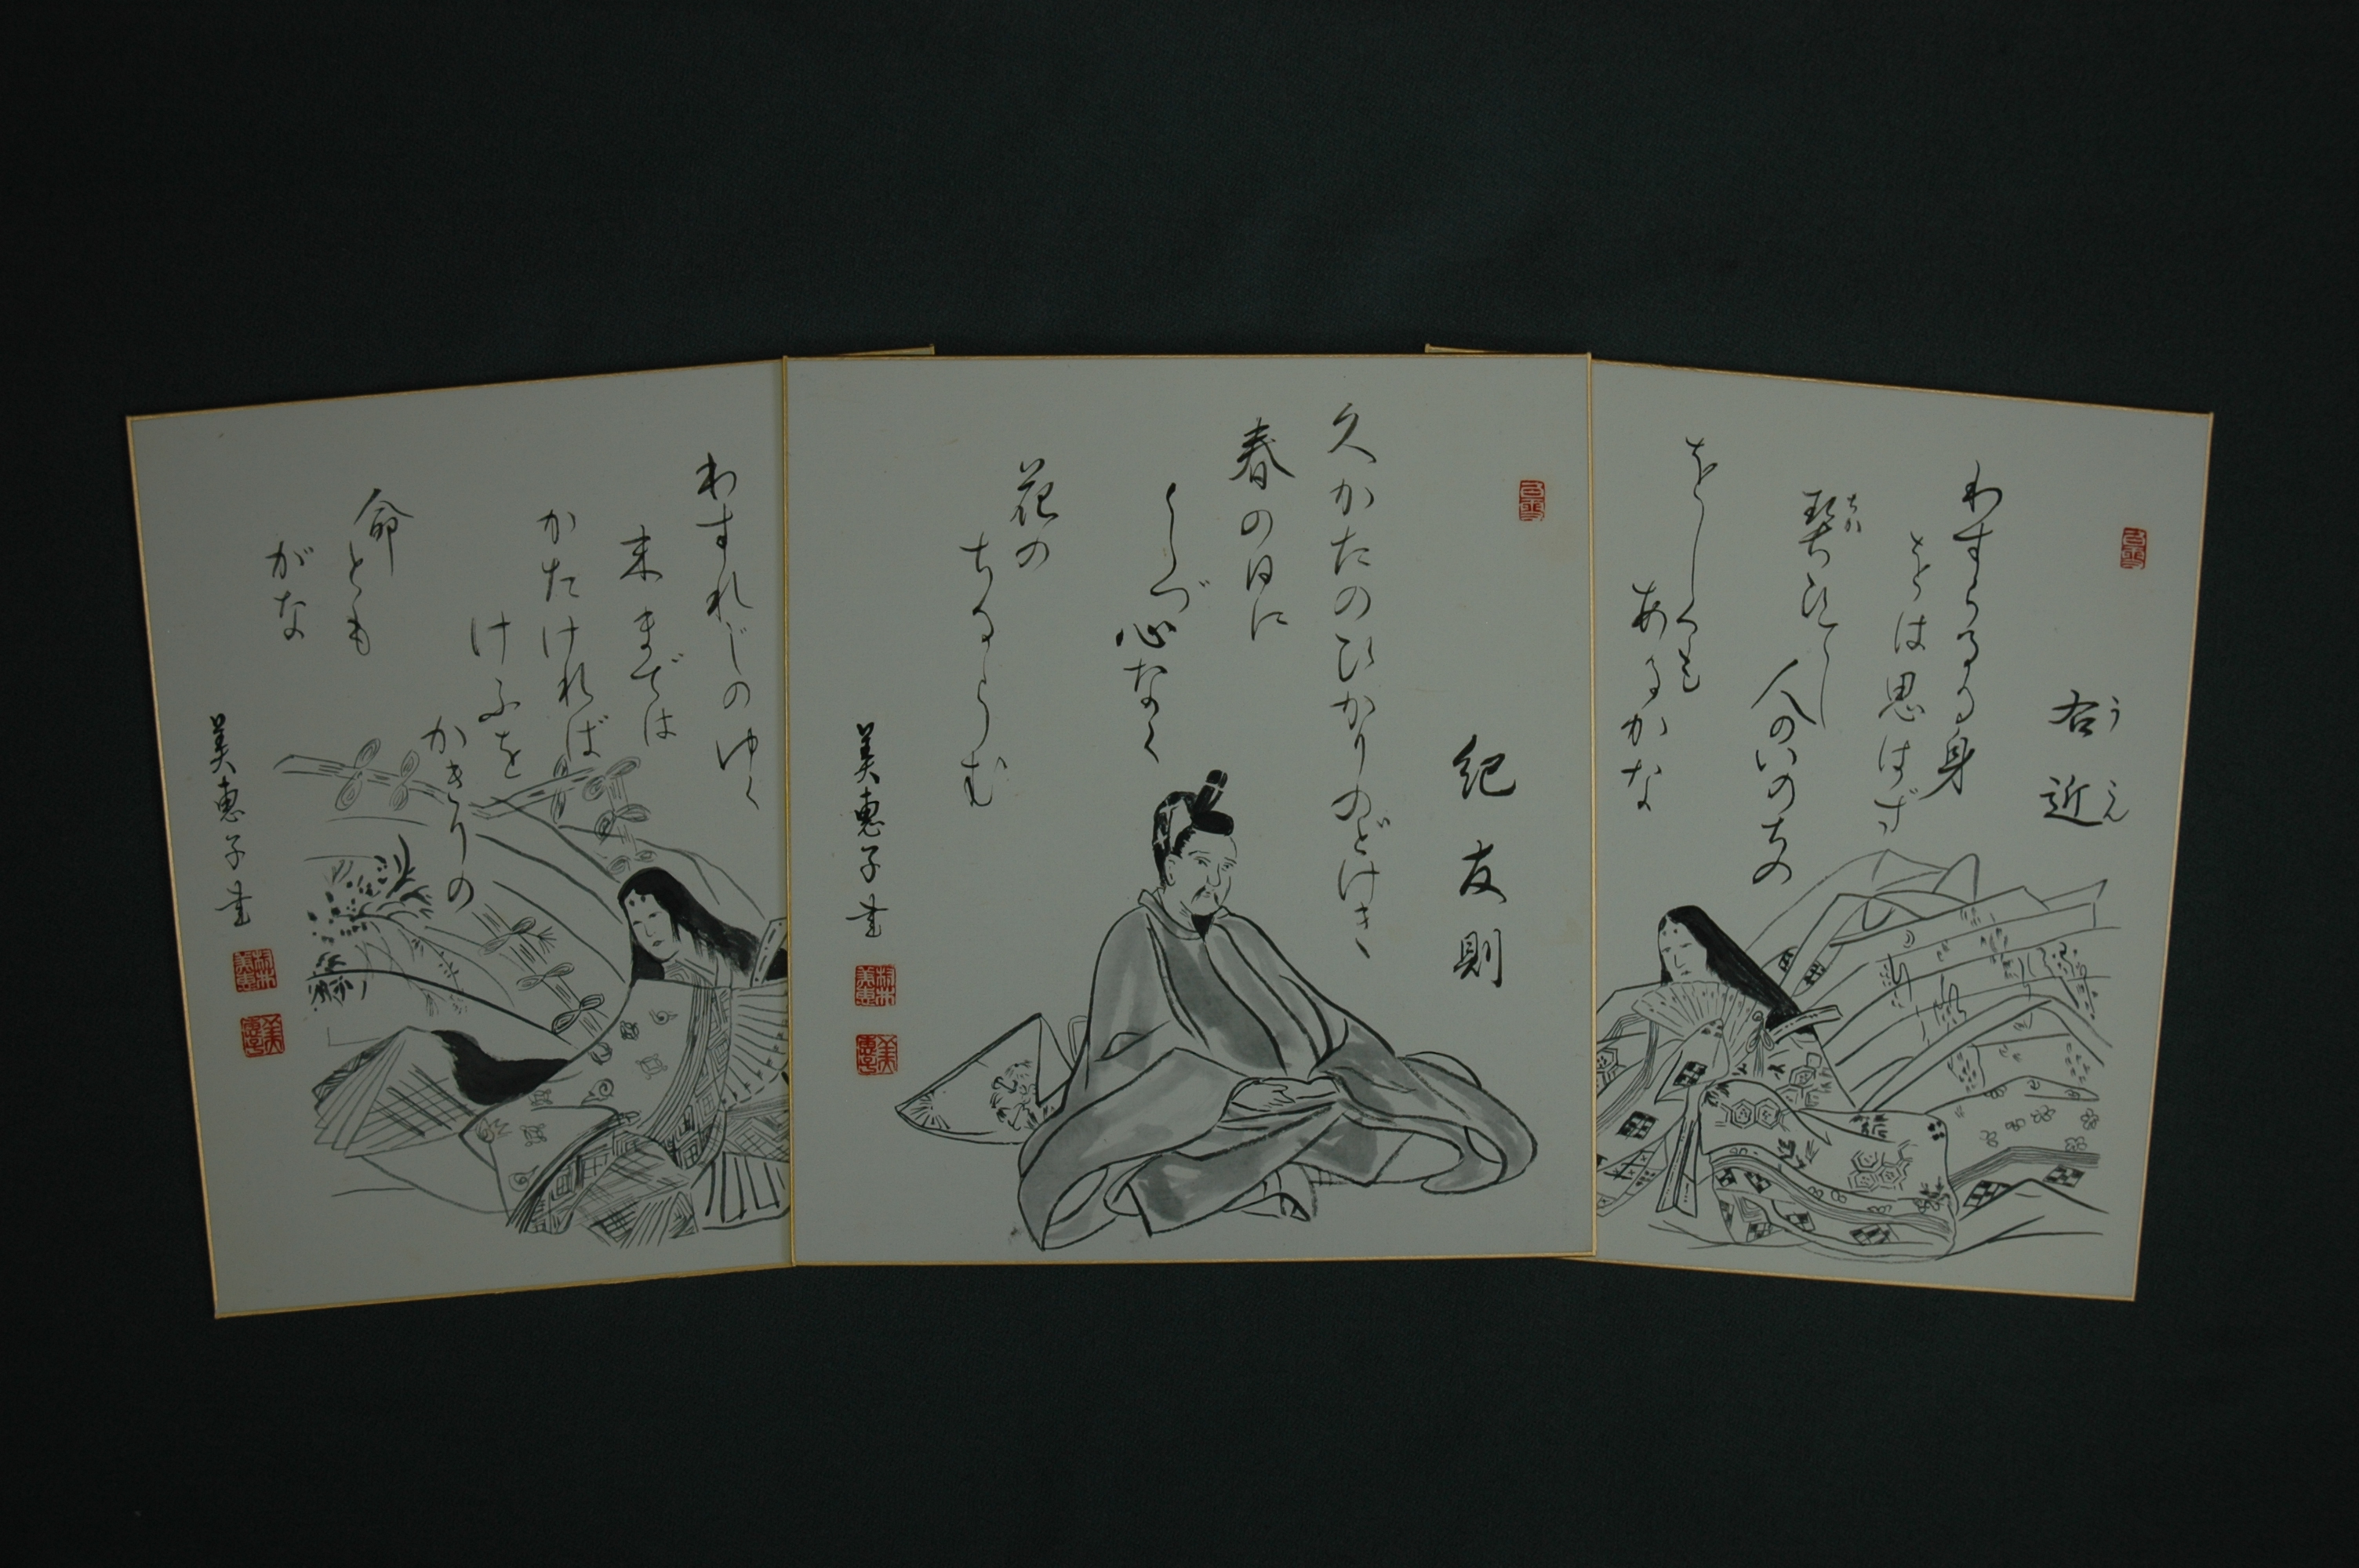 右近
うこん
わすらるる身
をば思はず
ちか
誓ひてし
人のいのちの
をしくも
あるかな
紀友則
久かたのひかりのどけき
春の日に
しづ心なく
花の
ちるらむ
美恵子書
わすれじのゆく
末までは
かたければ
けふを
かぎりの
命とも
がな
美恵子書